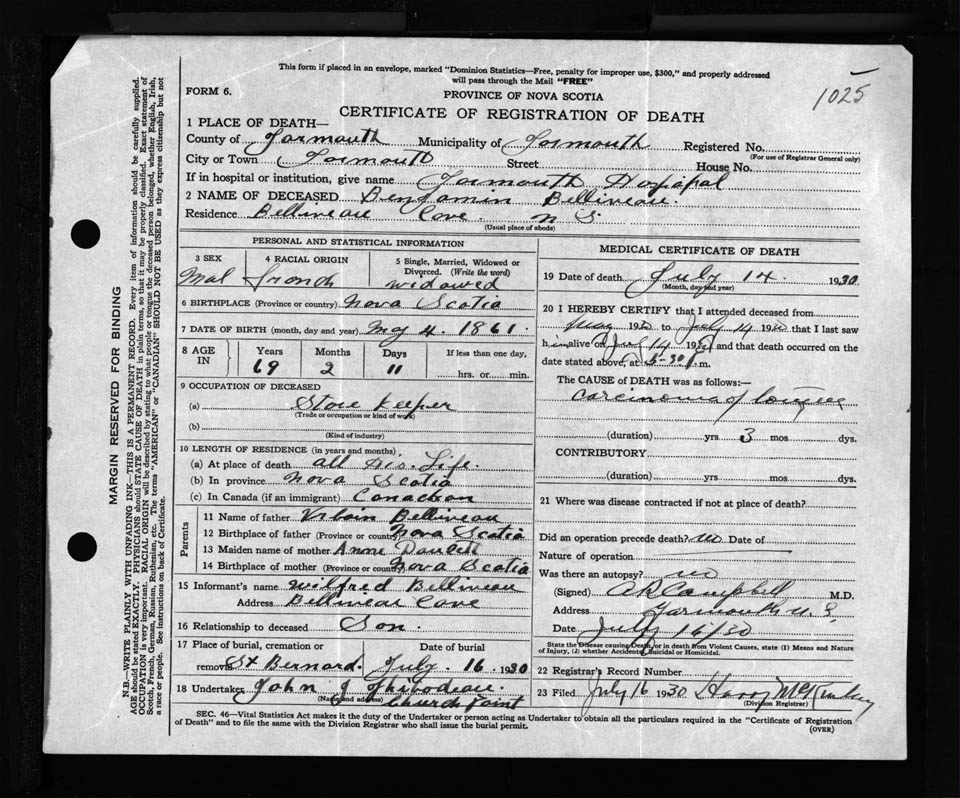 This form if placed in an envelope, marked "Dominion Statistics—Free, penalty for improper use, $300," and properly addressed
will pass through the Mail "FREE"
1025
FORM 6.
PROVINCE OF NOVA SCOTIA
CERTIFICATE OF REGISTRATION OF DEATH
1 PLACE OF DEATH—
County of Yarmouth Municipality of Yarmouth Registered No.
(For use of Registrar General only)
City or Town Yarmouth Street House No.
If in hospital or institution, give name Yarmouth Hospital
2 NAME OF DECEASED Benjamin Belliveau.
Residence Belliveau Cove. N. S.
(Usual place of abode)
PERSONAL AND STATISTICAL INFORMATION
3 SEX 4 RACIAL ORIGIN 5 Single, Married, Widowed or
Divorced. (Write the word)
Mal French widowed
6 BIRTHPLACE (Province or country) Nova Scotia
7 DATE OF BIRTH (month, day and year) May 4. 1861.
8 AGE IN Years Months Days If less than one day,
69 2 11 hrs. or min.
9 OCCUPATION OF DECEASED
(a) Store Keeper
(Trade or occupation or kind of work)
(b)
(Kind of industry)
10 LENGTH OF RESIDENCE (in years and months)
(a) At place of death all his Life.
(b) In province Nova Scotia
(c) In Canada (if an immigrant)
Parents
11 Name of father Belliveau
12 Birthplace of father (Province or country) Nova Scotia
13 Maiden name of mother Anne
14 Birthplace of mother (Province or country) Nova Scotia
15 Informant's name Wilfred Belliveau
Address Belliveau Cove
16 Relationship to deceased Son.
17 Place of burial, cremation or
removal St Bernard. July. 16. 1930
18 Undertaker John J Thibodeau.
(Name and address) Church Point
MEDICAL CERTIFICATE OF DEATH
19 Date of death July 14. 1930
(Month, day and year)
20 I HEREBY CERTIFY that I attended deceased from
May 1930 to July 14 1930 that I last saw
him alive on July 14 1930 and that death occurred on the
date stated above, at 5-30 P.m.
The CAUSE OF DEATH was as follows:—
Carcinoma of tongue
(duration) yrs 3 mos dys.
CONTRIBUTORY
(duration) yrs. mos. dys.
21 Where was disease contracted if not at place of death?
Did an operation precede death? no Date of
Nature of operation
Was there an autopsy? no
(Signed) Campbell M.D.
Address Yarmouth N. S.
Date July 16/30
State the Disease causing Death, or in death from Violent Causes, state (1) Means and Nature
of Injury, (2) whether Accidental, Suicidal or Homicidal.
22 Registrar's Record Number
23 Filed July 16 1930 Harry
(Division Registrar)
SEC. 46—Vital Statistics Act makes it the duty of the Undertaker or person acting as Undertaker to obtain all the particulars required in the "Certificate of Registration
of Death" and to file the same with the Division Registrar who shall issue the burial permit.
(OVER)
MARGIN RESERVED FOR BINDING
N.B.—WRITE PLAINLY WITH UNFADING INK—THIS IS A PERMANENT RECORD. Every item of information should be carefully supplied.
AGE should be stated EXACTLY. PHYSICIANS should STATE CAUSE OF DEATH in plain terms, so that it may be properly classified. Exact statement of
OCCUPATION is very important. RACIAL ORIGIN will be described by stating to what people or tongue the deceased person belonged, whether English, Irish,
Scotch, French, German, Russian, Ruthenian, etc. The terms "AMERICAN" or "CANADIAN" SHOULD NOT BE USED as they express citizenship but not
a race or people. See instructions on back of Certificate.